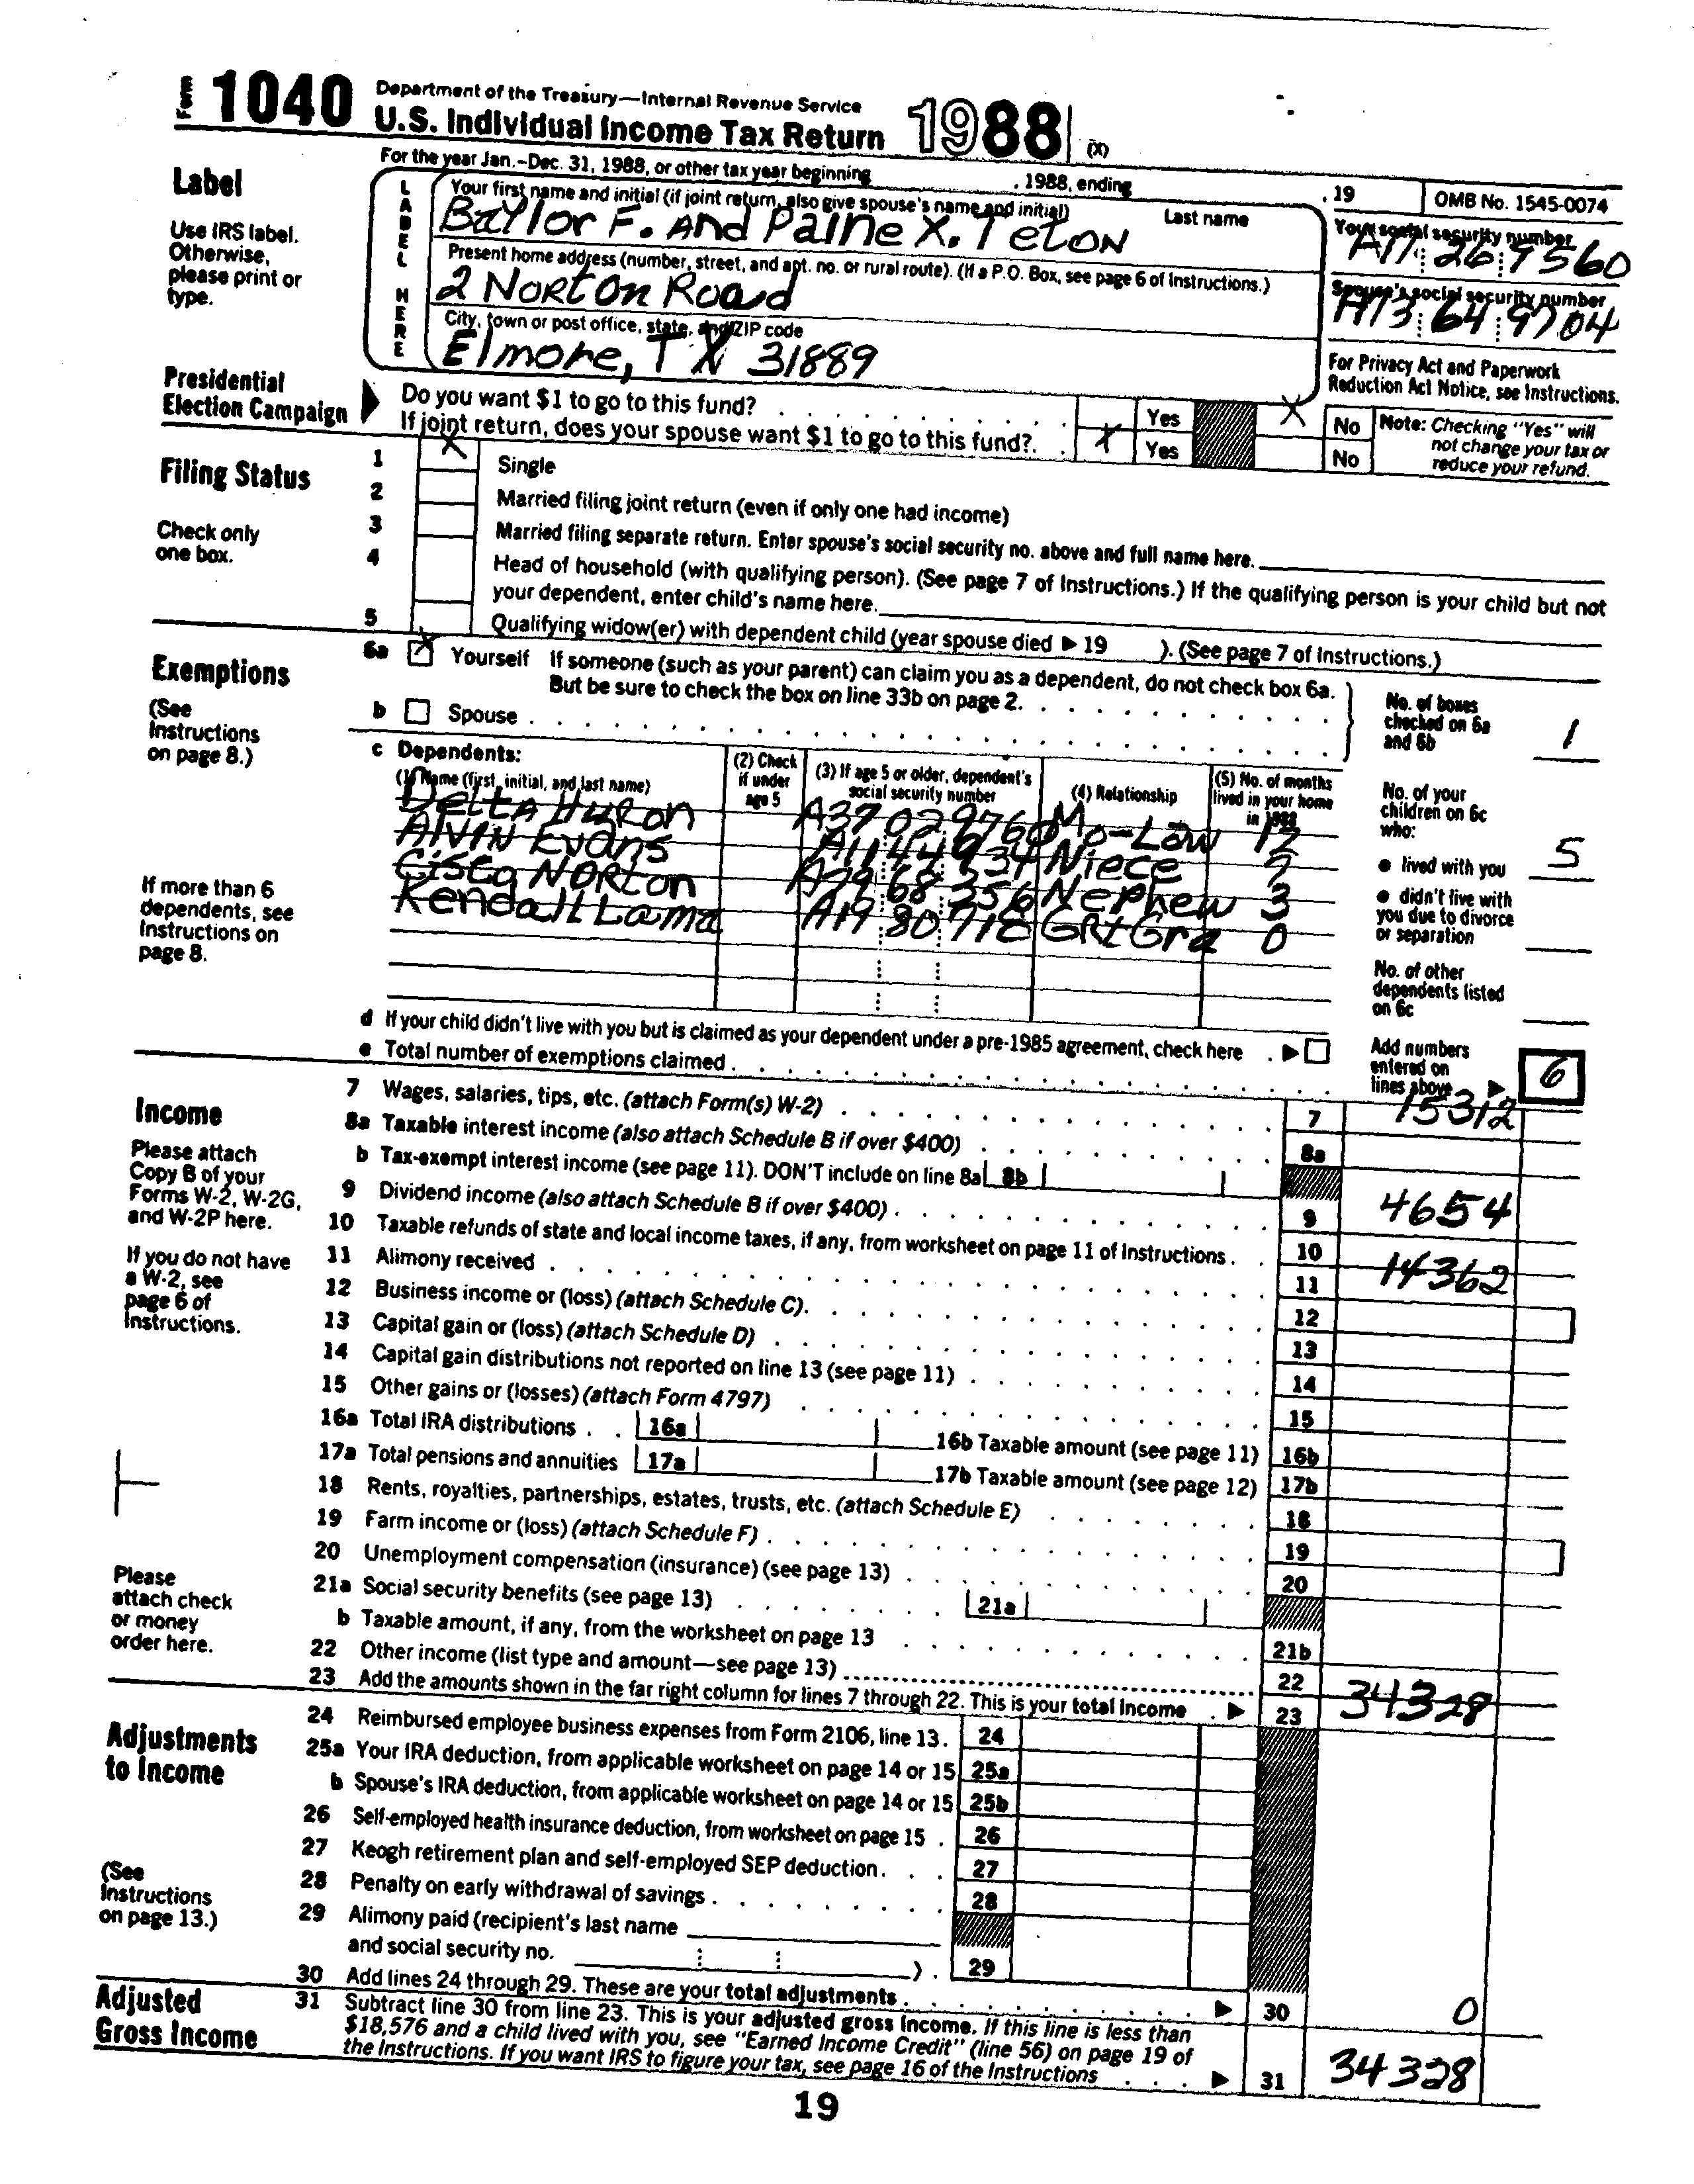 Form 1040 Department of the Treasury—Internal Revenue Service
U.S. Individual Income Tax Return 1988 (X)
For the year Jan.–Dec. 31, 1988, or other tax year beginning , 1988, ending , 19 OMB No. 1545-0074
Label
Use IRS label. Otherwise, please print or type.
LABEL HERE
Your first name and initial (if joint return, also give spouse's name and initial) Last name
Baylor F. And Paine X. Teton
Your social security number
Present home address (number, street, and apt. no. or rural route). (If a P.O. Box, see page 6 of Instructions.)
2 Norton Road
Spouse's social security number
A13 64 9704
City, town or post office, state, and ZIP code
Elmore, TX 31889
For Privacy Act and Paperwork Reduction Act Notice, see Instructions.
Presidential Election Campaign
Do you want $1 to go to this fund? Yes X No
If joint return, does your spouse want $1 to go to this fund? X Yes No
Note: Checking "Yes" will not change your tax or reduce your refund.
Filing Status
Check only one box.
1 X Single
2 Married filing joint return (even if only one had income)
3 Married filing separate return. Enter spouse's social security no. above and full name here.
4 Head of household (with qualifying person). (See page 7 of Instructions.) If the qualifying person is your child but not
your dependent, enter child's name here.
5 Qualifying widow(er) with dependent child (year spouse died ▶ 19 ). (See page 7 of Instructions.)
Exemptions
(See Instructions on page 8.)
6a X Yourself If someone (such as your parent) can claim you as a dependent, do not check box 6a.
But be sure to check the box on line 33b on page 2.
b Spouse
No. of boxes checked on 6a and 6b 1
c Dependents:
(1) Name (first, initial, and last name) (2) Check if under age 5 (3) If age 5 or older, dependent's social security number (4) Relationship (5) No. of months lived in your home in 1988
Delta Huron A37 02 9760 Mo-Law 12
Alvin Evans Niece
Cisco Norton A79 68 356 Nephew 3
Kendall Lama A19 80 710 GRtGra 0
If more than 6 dependents, see Instructions on page 8.
No. of your children on 6c who:
● lived with you 5
● didn't live with you due to divorce or separation
No. of other dependents listed on 6c
d If your child didn't live with you but is claimed as your dependent under a pre-1985 agreement, check here ▶
e Total number of exemptions claimed
Add numbers entered on lines above ▶ 6
Income
Please attach Copy B of your Forms W-2, W-2G, and W-2P here.
If you do not have a W-2, see page 6 of Instructions.
Please attach check or money order here.
7 Wages, salaries, tips, etc. (attach Form(s) W-2) 7 15312
8a Taxable interest income (also attach Schedule B if over $400) 8a
b Tax-exempt interest income (see page 11). DON'T include on line 8a 8b
9 Dividend income (also attach Schedule B if over $400) 9 4654
10 Taxable refunds of state and local income taxes, if any, from worksheet on page 11 of Instructions 10
11 Alimony received 11 14362
12 Business income or (loss) (attach Schedule C) 12
13 Capital gain or (loss) (attach Schedule D) 13
14 Capital gain distributions not reported on line 13 (see page 11) 14
15 Other gains or (losses) (attach Form 4797) 15
16a Total IRA distributions 16a 16b Taxable amount (see page 11) 16b
17a Total pensions and annuities 17a 17b Taxable amount (see page 12) 17b
18 Rents, royalties, partnerships, estates, trusts, etc. (attach Schedule E) 18
19 Farm income or (loss) (attach Schedule F) 19
20 Unemployment compensation (insurance) (see page 13) 20
21a Social security benefits (see page 13) 21a
b Taxable amount, if any, from the worksheet on page 13 21b
22 Other income (list type and amount—see page 13) 22
23 Add the amounts shown in the far right column for lines 7 through 22. This is your total income ▶ 23 34328
Adjustments to Income
(See Instructions on page 13.)
24 Reimbursed employee business expenses from Form 2106, line 13. 24
25a Your IRA deduction, from applicable worksheet on page 14 or 15 25a
b Spouse's IRA deduction, from applicable worksheet on page 14 or 15 25b
26 Self-employed health insurance deduction, from worksheet on page 15 26
27 Keogh retirement plan and self-employed SEP deduction 27
28 Penalty on early withdrawal of savings 28
29 Alimony paid (recipient's last name
and social security no. ) 29
30 Add lines 24 through 29. These are your total adjustments ▶ 30 0
Adjusted Gross Income
31 Subtract line 30 from line 23. This is your adjusted gross income. If this line is less than
$18,576 and a child lived with you, see "Earned Income Credit" (line 56) on page 19 of
the Instructions. If you want IRS to figure your tax, see page 16 of the Instructions ▶ 31 34328
19